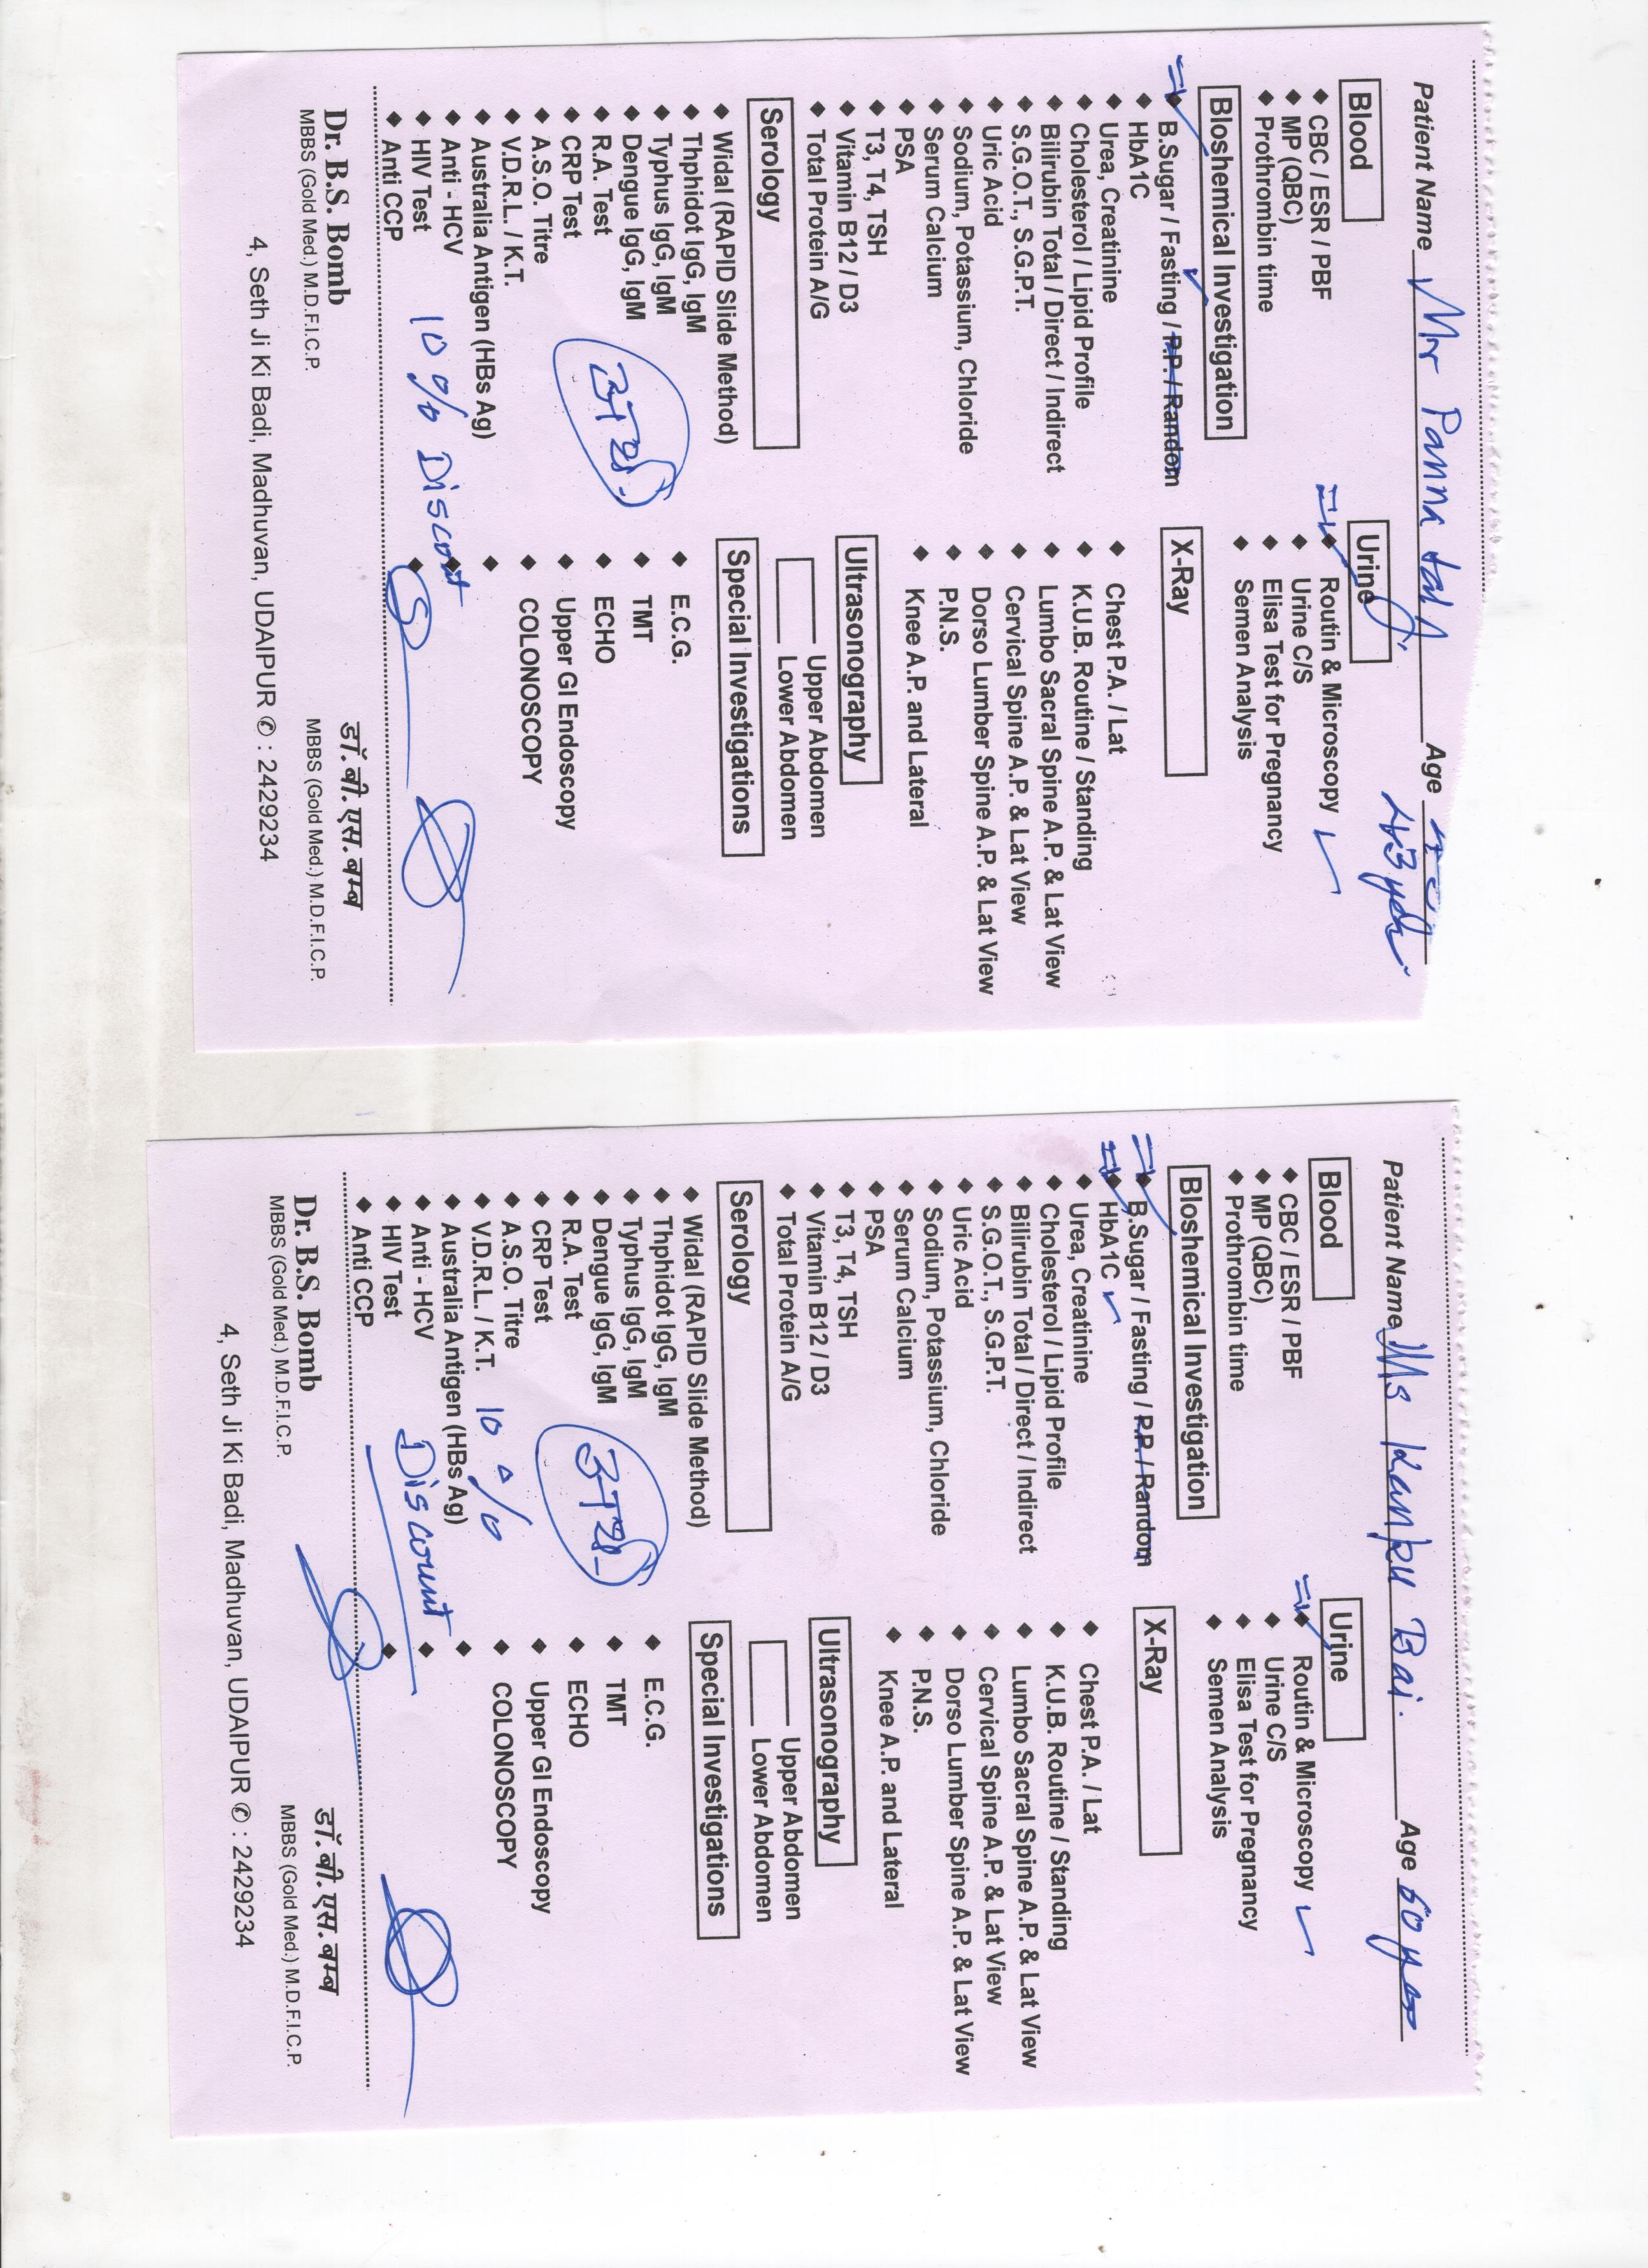 Patient Name Mr Panna Lal Ji Age
Blood
◆ CBC / ESR / PBF
◆ MP (QBC)
◆ Prothrombin time
Bloshemical Investigation
◆ B.Sugar / Fasting / P.P. / Random
◆ HbA1C
◆ Urea, Creatinine
◆ Cholesterol / Lipid Profile
◆ Bilirubin Total / Direct / Indirect
◆ S.G.O.T., S.G.P.T.
◆ Uric Acid
◆ Sodium, Potassium, Chloride
◆ Serum Calcium
◆ PSA
◆ T3, T4, TSH
◆ Vitamin B12 / D3
◆ Total Protein A/G
Serology
◆ Widal (RAPID Slide Method)
◆ Thphidot IgG, IgM
◆ Typhus IgG, IgM
◆ Dengue IgG, IgM
◆ R.A. Test
◆ CRP Test
◆ A.S.O. Titre
◆ V.D.R.L. / K.T.
◆ Australia Antigen (HBs Ag)
◆ Anti - HCV
◆ HIV Test
◆ Anti CCP
10 % Discount
Urine
◆ Routin & Microscopy
◆ Urine C/S
◆ Elisa Test for Pregnancy
◆ Semen Analysis
X-Ray
◆ Chest P.A. / Lat
◆ K.U.B. Routine / Standing
◆ Lumbo Sacral Spine A.P. & Lat View
◆ Cervical Spine A.P. & Lat View
◆ Dorso Lumber Spine A.P. & Lat View
◆ P.N.S.
◆ Knee A.P. and Lateral
Ultrasonography
Upper Abdomen
Lower Abdomen
Special Investigations
◆ E.C.G.
◆ TMT
◆ ECHO
◆ Upper GI Endoscopy
◆ COLONOSCOPY
Dr. B.S. Bomb
MBBS (Gold Med.) M.D.F.I.C.P.
डॉ. बी. एस. बम्ब
MBBS (Gold Med.) M.D.F.I.C.P.
4, Seth Ji Ki Badi, Madhuvan, UDAIPUR ✆ : 2429234
Patient Name Ms Kanku Bai. Age 60 yrs
Blood
◆ CBC / ESR / PBF
◆ MP (QBC)
◆ Prothrombin time
Bloshemical Investigation
◆ B.Sugar / Fasting / P.P. / Random
◆ HbA1C
◆ Urea, Creatinine
◆ Cholesterol / Lipid Profile
◆ Bilirubin Total / Direct / Indirect
◆ S.G.O.T., S.G.P.T.
◆ Uric Acid
◆ Sodium, Potassium, Chloride
◆ Serum Calcium
◆ PSA
◆ T3, T4, TSH
◆ Vitamin B12 / D3
◆ Total Protein A/G
Serology
◆ Widal (RAPID Slide Method)
◆ Thphidot IgG, IgM
◆ Typhus IgG, IgM
◆ Dengue IgG, IgM
◆ R.A. Test
◆ CRP Test
◆ A.S.O. Titre
◆ V.D.R.L. / K.T.
◆ Australia Antigen (HBs Ag)
◆ Anti - HCV
◆ HIV Test
◆ Anti CCP
10 %
Discount
Urine
◆ Routin & Microscopy
◆ Urine C/S
◆ Elisa Test for Pregnancy
◆ Semen Analysis
X-Ray
◆ Chest P.A. / Lat
◆ K.U.B. Routine / Standing
◆ Lumbo Sacral Spine A.P. & Lat View
◆ Cervical Spine A.P. & Lat View
◆ Dorso Lumber Spine A.P. & Lat View
◆ P.N.S.
◆ Knee A.P. and Lateral
Ultrasonography
Upper Abdomen
Lower Abdomen
Special Investigations
◆ E.C.G.
◆ TMT
◆ ECHO
◆ Upper GI Endoscopy
◆ COLONOSCOPY
Dr. B.S. Bomb
MBBS (Gold Med.) M.D.F.I.C.P.
डॉ. बी. एस. बम्ब
MBBS (Gold Med.) M.D.F.I.C.P.
4, Seth Ji Ki Badi, Madhuvan, UDAIPUR ✆ : 2429234